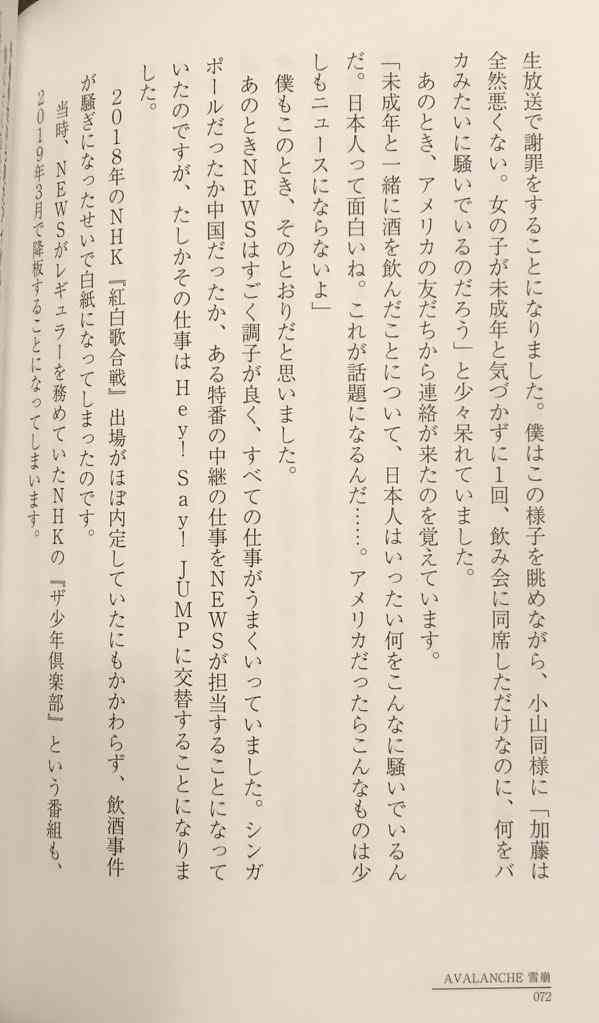 生放送で謝罪をすることになりました。僕はこの様子を眺めながら、小山同様に「加藤は
全然悪くない。女の子が未成年と気づかずに1回、飲み会に同席しただけなのに、何をバ
カみたいに騒いでいるのだろう」と少々呆れていました。
あのとき、アメリカの友だちから連絡が来たのを覚えています。
「未成年と一緒に酒を飲んだことについて、日本人はいったい何をこんなに騒いでいるん
だ。日本人って面白いね。これが話題になるんだ……。アメリカだったらこんなものは少
しもニュースにならないよ」
僕もこのとき、そのとおりだと思いました。
あのときNEWSはすごく調子が良く、すべての仕事がうまくいっていました。シンガ
ポールだったか中国だったか、ある特番の中継の仕事をNEWSが担当することになって
いたのですが、たしかその仕事は Hey! Say! JUMP に交替することになりま
した。
2018年のNHK『紅白歌合戦』出場がほぼ内定していたにもかかわらず、飲酒事件
が騒ぎになったせいで白紙になってしまったのです。
当時、NEWSがレギュラーを務めていたNHKの『ザ少年倶楽部』という番組も、
2019年3月で降板することになってしまいます。
AVALANCHE 雪崩
072